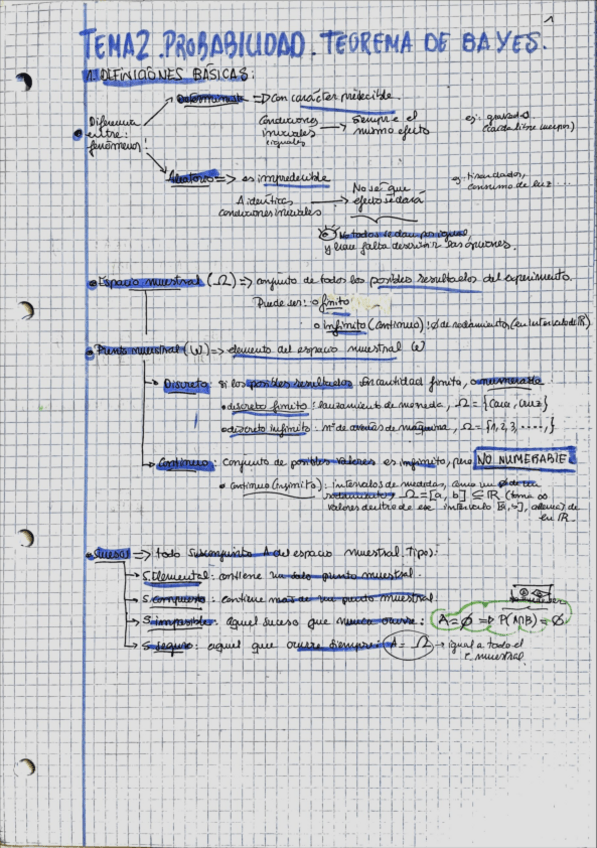 TEMA2. PROBABILIDAD. TEOREMA DE BAYES.
1. DEFINICIONES BÁSICAS:
Diferencia entre: fenómenos
Determinista => con carácter predecible.
Condiciones iniciales iguales → Siempre el mismo efecto
ej: gravedad (caída libre cuerpos)
Aleatorio => es impredecible
A idénticas condiciones iniciales → No sé que efecto se dará
ej: tirar dados, consumo de luz...
No todos se dan por igual
y hace falta describir las opciones.
Espacio muestral (Ω) => conjunto de todos los posibles resultados del experimento.
Puede ser: o finito
o infinito (continuo): ϕ de rodamientos (en intervalo de ℝ)
Punto muestral (W) => elemento del espacio muestral W
Discreto: si los posibles resultados son cantidad finita, o numerable
• discreto finito: lanzamiento de moneda, Ω = {cara, cruz}
• discreto infinito: nº de averías de máquina, Ω = {1, 2, 3, ....,}
Continuo: Conjunto de posibles valores es infinito, pero NO NUMERABLE
• continuo (infinito): intervalos de medidas, como un ϕ de
rodamiento, Ω = [a, b] ⊆ ℝ (toma ∞
valores dentro de ese intervalo [a, b], además de
en ℝ.
Suceso => todo subconjunto A del espacio muestral. Tipos:
S. Elemental: contiene un solo punto muestral.
S. compuesto: contiene más de un punto muestral.
S. imposible: aquel suceso que nunca ocurre: A = ∅ => P(A∩B) = ∅
S. seguro: aquel que ocurre siempre: A = Ω → igual a todo el
e. muestral.